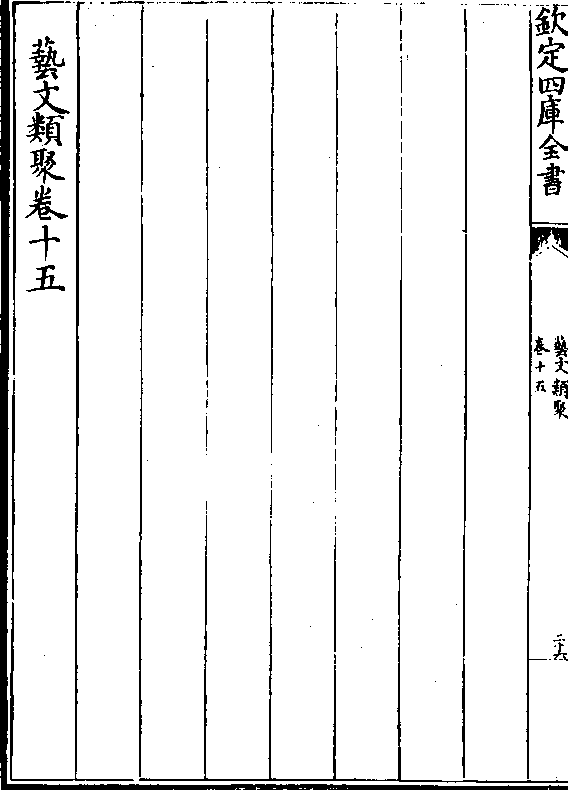 欽定四庫全書
藝文類聚
卷十五
二十六
藝文類聚卷十五